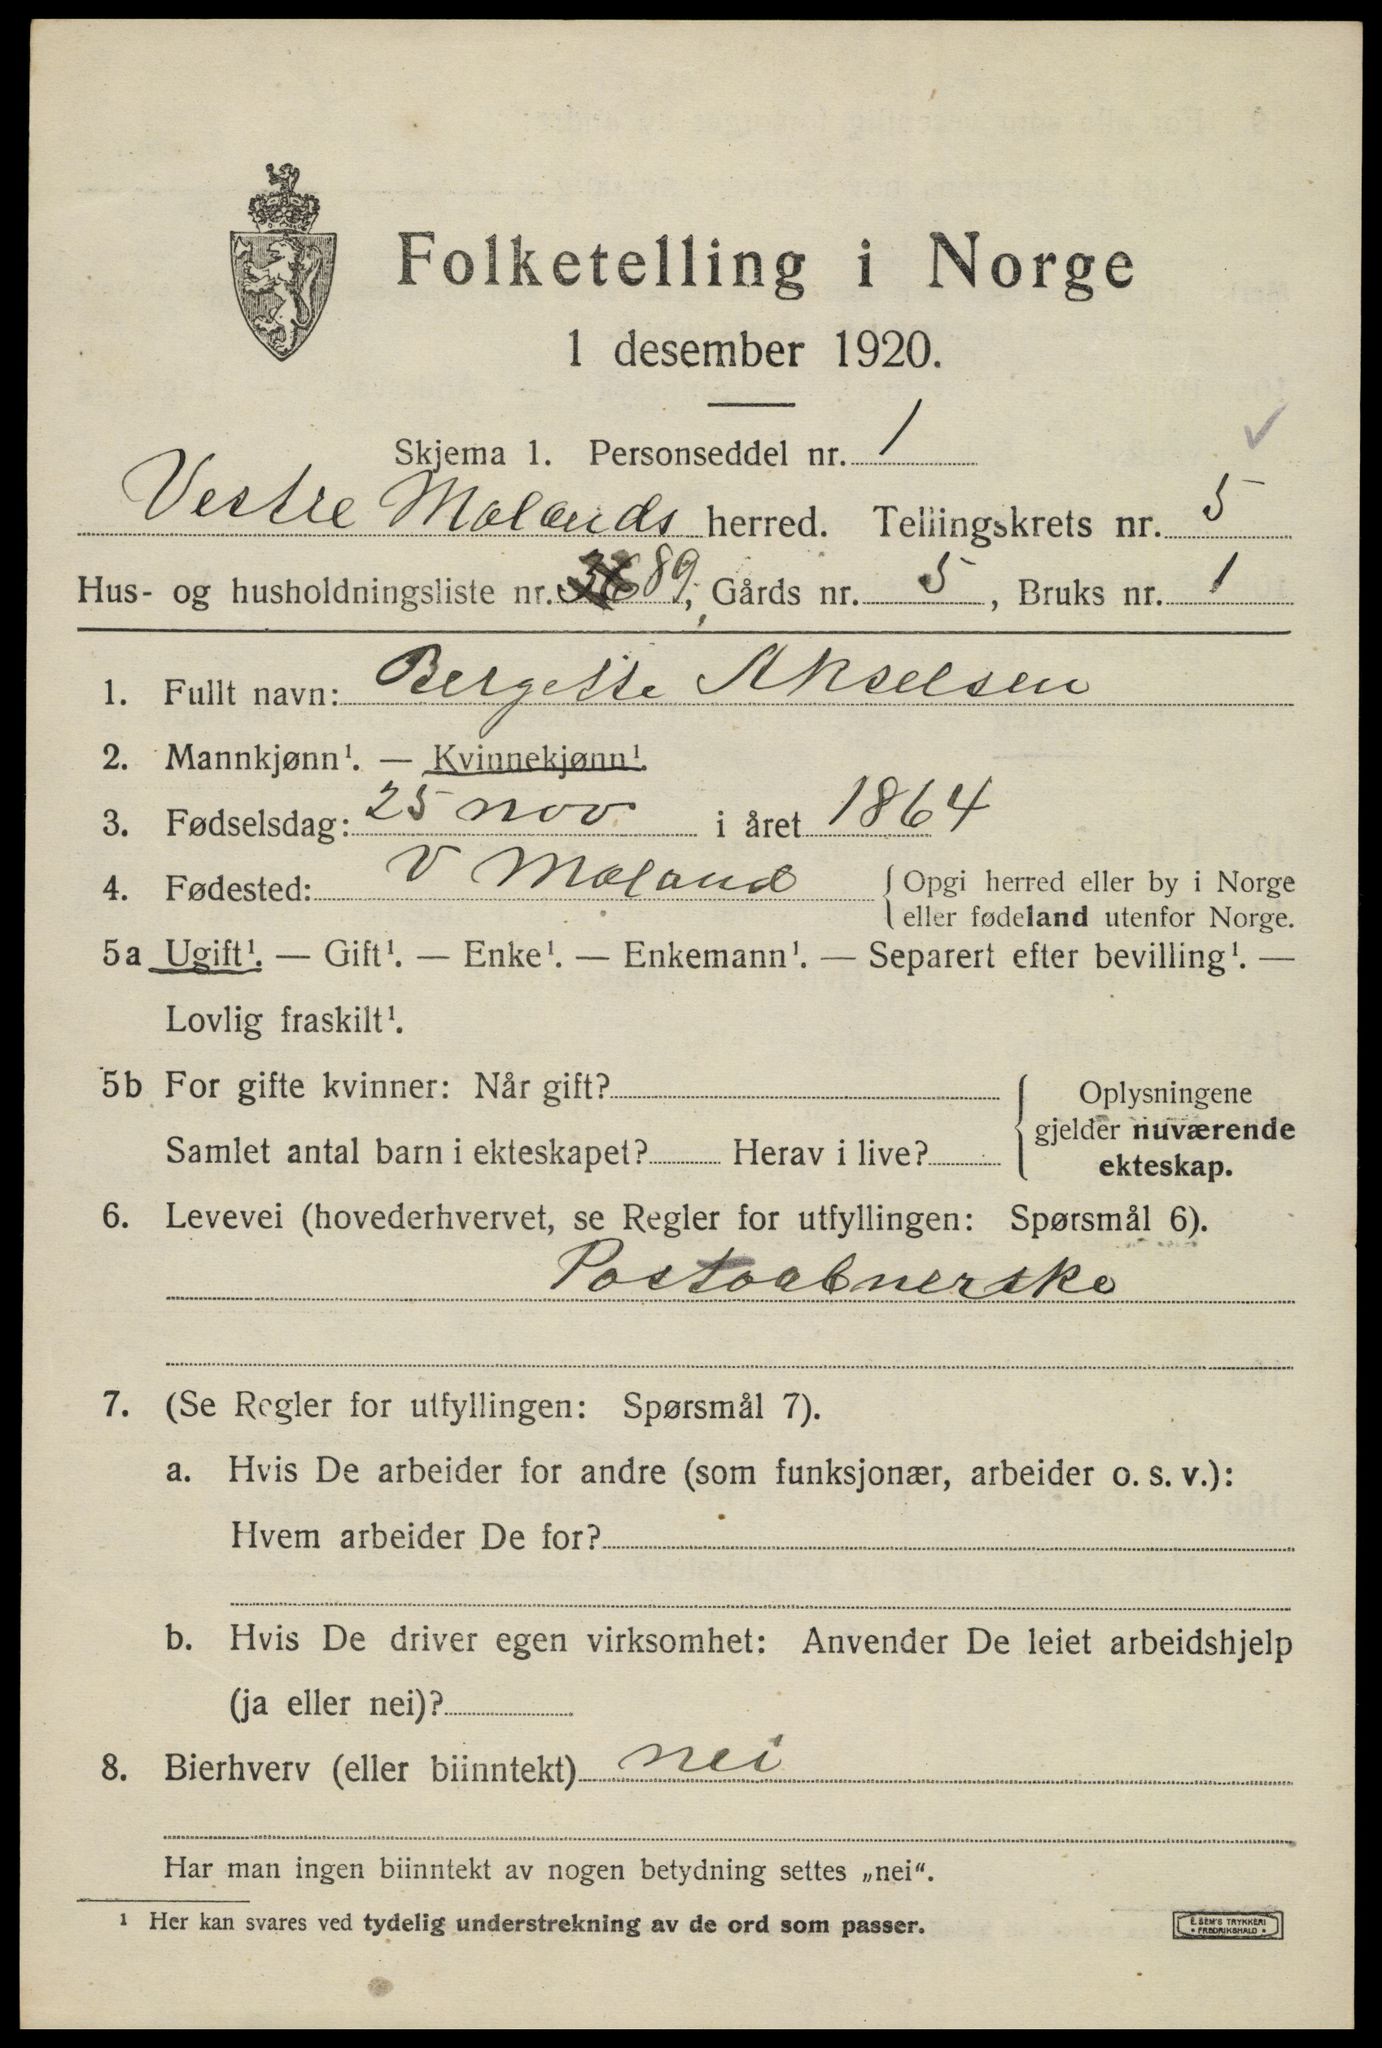 Folketelling i Norge
1 desember 1920.
Skjema 1. Personseddel nr. 1
Vestre Molands herred. Tellingskrets nr. 5
Hus- og husholdningsliste nr. 89, Gårds nr. 5, Bruks nr. 1
1. Fullt navn: Bergette Akselsen
2. Mannkjønn¹. — Kvinnekjønn¹.
3. Fødselsdag: 25 nov i året 1864
4. Fødested: V Moland { Opgi herred eller by i Norge
eller fødeland utenfor Norge.
5a Ugift¹. — Gift¹. — Enke¹. — Enkemann¹. — Separert efter bevilling¹. —
Lovlig fraskilt¹.
5b For gifte kvinner: Når gift? { Oplysningene
gjelder nuværende
Samlet antal barn i ekteskapet? Herav i live? ekteskap.
6. Levevei (hovederhvervet, se Regler for utfyllingen: Spørsmål 6).
Postoabnerske
7. (Se Regler for utfyllingen: Spørsmål 7).
a. Hvis De arbeider for andre (som funksjonær, arbeider o. s. v.):
Hvem arbeider De for?
b. Hvis De driver egen virksomhet: Anvender De leiet arbeidshjelp
(ja eller nei)?
8. Bierhverv (eller biinntekt) nei
Har man ingen biinntekt av nogen betydning settes „nei“.
¹ Her kan svares ved tydelig understrekning av de ord som passer.
E. SEM'S TRYKKERI
• FREDRIKSHALD •